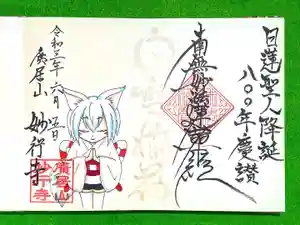 日蓮聖人降誕
八〇〇年慶讃
南無妙法蓮華経
令和三年六月
廣居山
妙行寺
廣居山
妙行寺